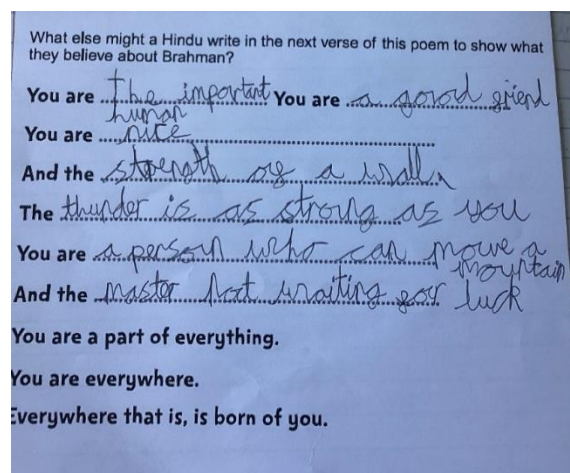 What else might a Hindu write in the next verse of this poem to show what
they believe about Brahman?
You are the important You are a good friend
human
You are nice
And the strength of a wall
The thunder is as strong as you
You are a person who can move a
mountain
And the master not waiting for luck
You are a part of everything.
You are everywhere.
Everywhere that is, is born of you.